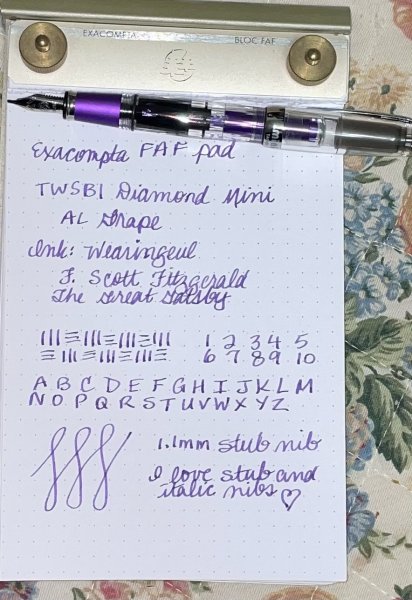 EXACOMPTA BLOC FAF
Exacompta FAF pad
TWSBI Diamond Mini
AL Grape
Ink: Wearingeul
F. Scott Fitzgerald
The Great Gatsby
1 2 3 4 5
6 7 8 9 10
A B C D E F G H I J K L M
N O P Q R S T U V W X Y Z
1.1mm stub nib
I love stub and
italic nibs ♡